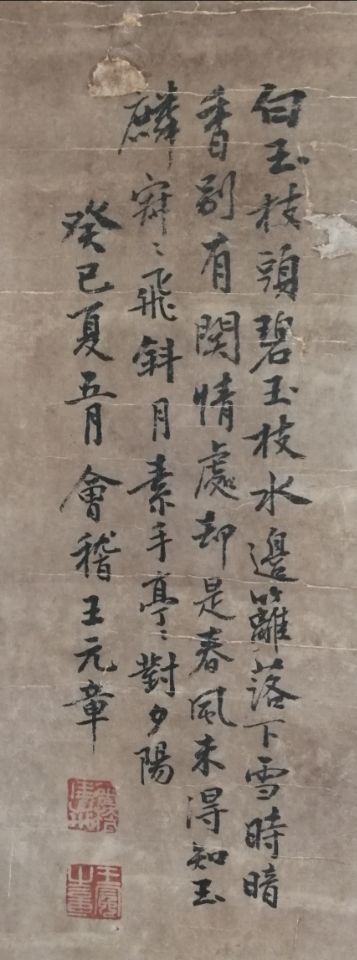 白玉枝頭碧玉枝水邊籬落下雪時暗
香別有関情處却是春風未得知玉
麟寂〻飛斜月素手亭〻對夕陽
癸巳夏五月會稽王元章